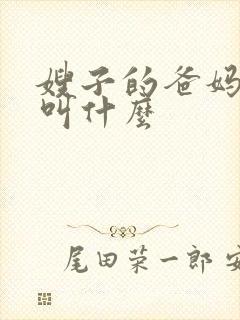 嫂子的爸妈
叫什麼
尾田荣一郎 安